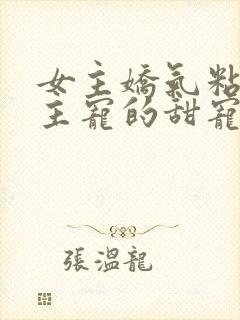 女主嬌氣粘
主寵的甜寵
張溫龍